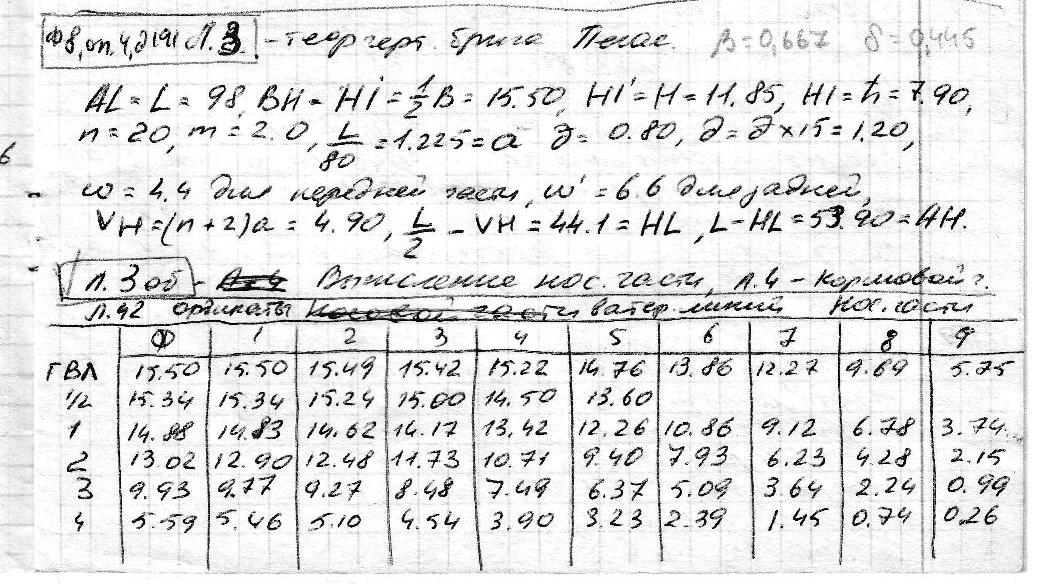 Ф8, оп.4, д191 Л.3. - теор черт. брига Пегас. β=0,667 δ=0,445
AL = L = 98, BH = Hi = ½B = 15.50, HI' = H = 11.85, HI = ħ = 7.90,
n = 20, m = 2.0, L/80 = 1.225 = a ∂ = 0.80, ∂ = ∂×15 = 1.20,
6
ω = 4.4 для передней части, ω' = 6.6 для задней,
VH = (n+2)a = 4.90, L/2 - VH = 44.1 = HL, L-HL = 53.90 = AH.
Л. 3 об - Л.4 Вычисление нос. части, Л.4 - кормовой ч.
Л.42 ординаты носовой части ватер. линий Нос. части
Ф 1 2 3 4 5 6 7 8 9
ГВЛ 15.50 15.50 15.49 15.42 15.22 14.76 13.86 12.27 9.69 5.75
1/2 15.34 15.34 15.24 15.00 14.50 13.60
1 14.88 14.83 14.62 14.17 13.42 12.26 10.86 9.12 6.78 3.74
2 13.02 12.90 12.48 11.73 10.71 9.40 7.93 6.23 4.28 2.15
3 9.93 9.77 9.27 8.48 7.49 6.37 5.09 3.64 2.24 0.99
4 5.59 5.46 5.10 4.54 3.90 3.23 2.39 1.45 0.74 0.26